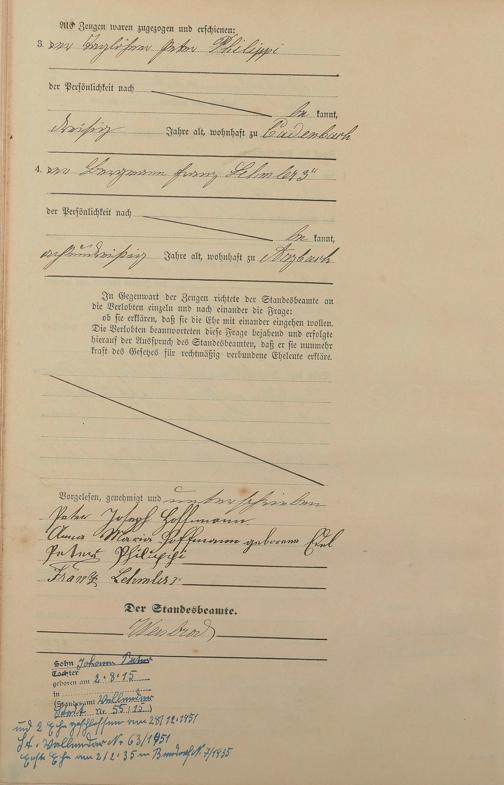 Als Zeugen waren zugezogen und erschienen:
3. der Taglöhner Peter Philippi
der Persönlichkeit nach
be kannt,
dreißig Jahre alt, wohnhaft zu Cadenbach
4. der Bergmann Franz
der Persönlichkeit nach
be kannt,
achtunddreißig Jahre alt, wohnhaft zu Arzbach
In Gegenwart der Zeugen richtete der Standesbeamte an
die Verlobten einzeln und nach einander die Frage:
ob sie erklären, daß sie die Ehe mit einander eingehen wollen.
Die Verlobten beantworteten diese Frage bejahend und erfolgte
hierauf der Ausspruch des Standesbeamten, daß er sie nunmehr
kraft des Gesetzes für rechtmäßig verbundene Eheleute erkläre.
Vorgelesen, genehmigt und unterschrieben
Peter Joseph Hoffmann
Anna Maria Hoffmann geborene Edel
Peter Philippi
Franz
Der Standesbeamte.
Sohn Johann Peter
Tochter
geboren am 2.8.15
in
(Standesamt Vallendar
Nr. 55/15)
2 Ehe geschlossen am 28/12.1951
St. Vallendar Nr. 63/1951
Erste Ehe am 2/2.35 in Bendorf N. 7/1935